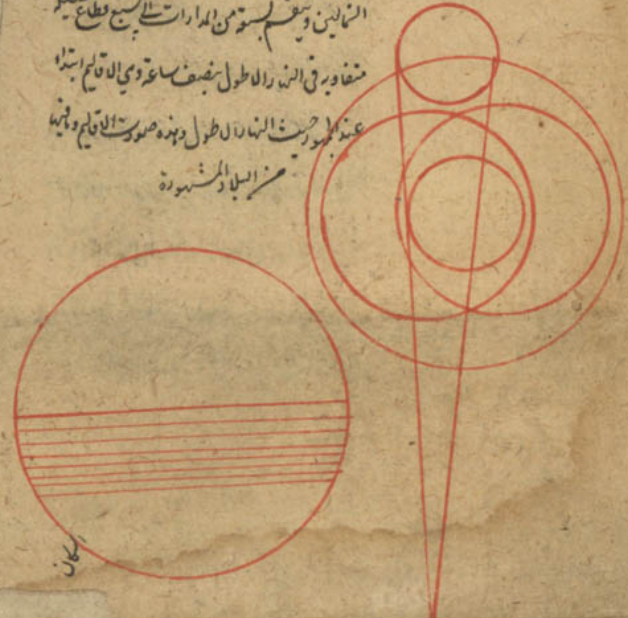 الشمالين وينقسم بستة من المدارات الى سبع قطاع
متفاوته فى النهار الاطول بنصف ساعة وهى الاقاليم ابتداء
عند الجمهور حيث النهار الاطول وهذه صورت الاقاليم وما فيها
من البلاد المشهورة